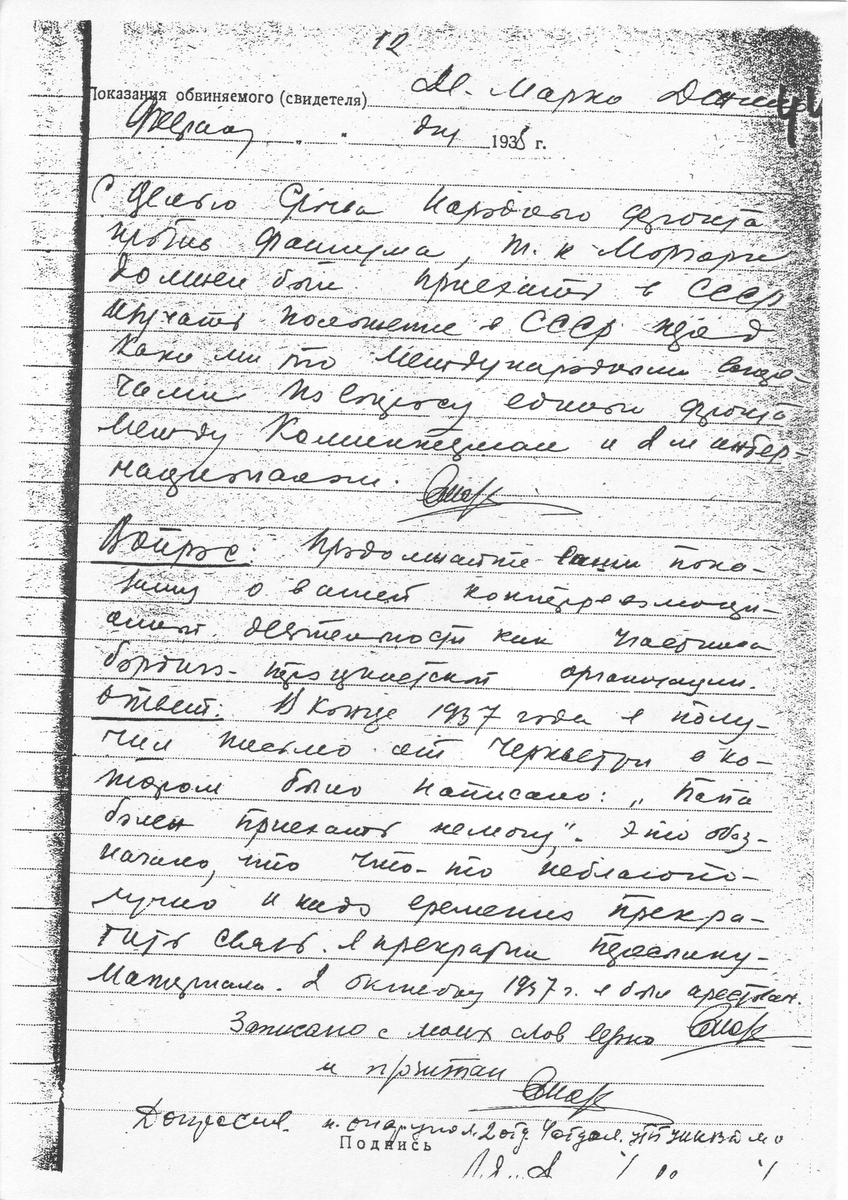 12
Показания обвиняемого (свидетеля) Де Марко
44
Февраля " " дня 1938 г.
С целью Народного фронта
против фашизма, т. к. Моргари
должен был приехать в СССР
изучать положение в СССР перед
какими то международными встре-
чами по вопросу единого фронта
между Коминтерном и 2м интер-
националом.
Вопрос: Продолжайте ваши пока-
зания о вашей контрреволюци-
онной деятельности как участника
бордиго-троцкистской организации.
Ответ. В конце 1937 года я полу-
чил письмо от в ко-
тором было написано: "Папа
болен приехать не могу". Это обоз-
начало, что что-то неблагопо-
лучно и надо временно прекра-
тить связь. Я прекратил пересылку
материала. 2 октября 1937 г. я был арестован.
Записано с моих слов верно
и прочитал
Допросил. н. опер уполн. 2 отд. 4 отдел.
Подпись